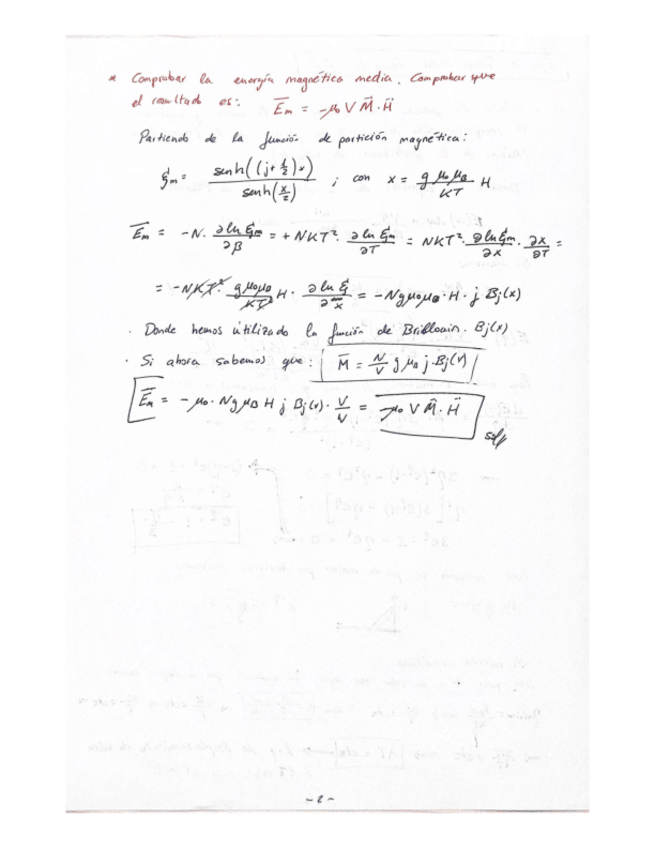 * Comprobar la energía magnética media. Comprobar que
el resultado es: Ēm = -μ₀ V M⃗·H⃗
Partiendo de la función de partición magnética:
ξm = senh((j+1/2)x) / senh(x/2) ; con x = gμ₀μB/KT H
Ēm = -N· ∂ln ξm/∂β = +NKT²· ∂ln ξm/∂T = NKT²· ∂ln ξm/∂x · ∂x/∂T =
= -NKT² gμ₀μB/KT² H · ∂ln ξm/∂x = -Ngμ₀μB·H·j Bj(x)
· Donde hemos utilizado la función de Brillouin. Bj(x)
· Si ahora sabemos que: M̄ = N/V g μB j·Bj(x)
Ēm = -μ₀·NgμB H j Bj(x)· V/V = -μ₀ V M⃗·H⃗
-2-